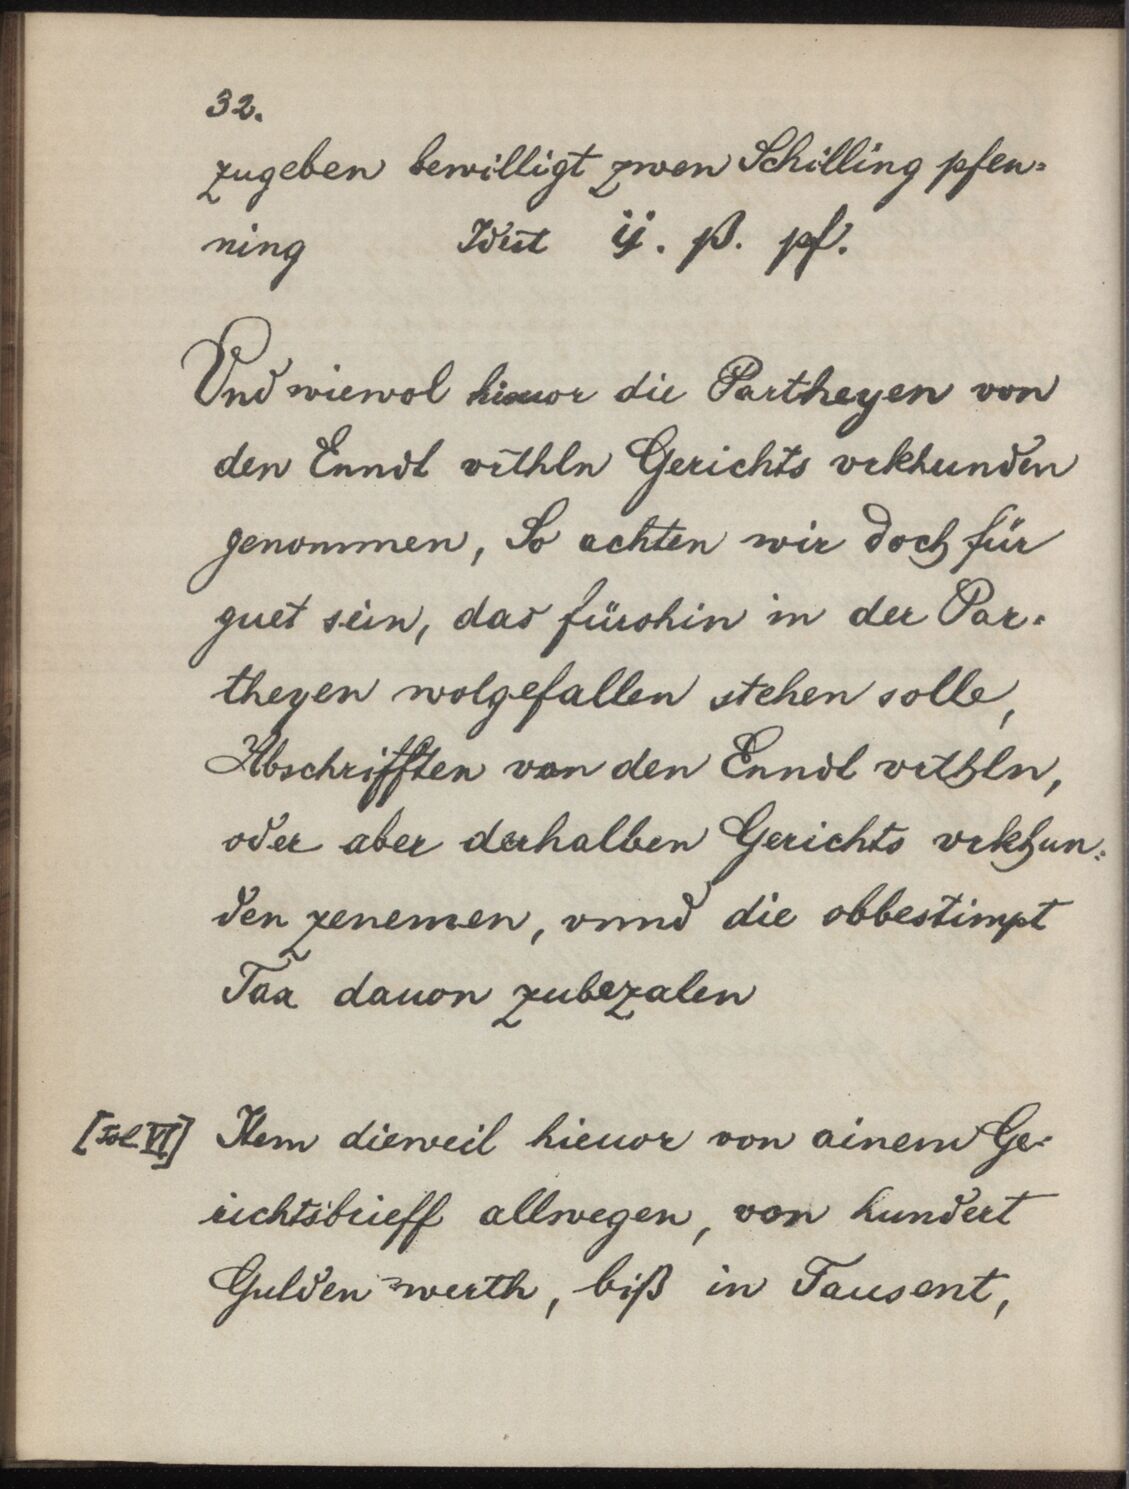 32.
zugeben bewilligt zwen Schilling pfen=
ning Idest ij. ß. pf.
Vnd wiewol hieuor die Partheyen von
den Enndt vrthln Gerichts vrkhunden
genommen, So achten wir doch für
guet sein, das fürohin in der Par=
theyen wolgefallen stehen solle,
Abschrifften von den Enndl vrthln,
oder aber derhalben Gerichts vrkhun=
den zenemen, vnnd die obbestimpt
Tax dauon zubezalen
[Fol. VI] Item dieweil hieuor von ainem Ge=
richtsbrieff allwegen, von hundert
Gulden werth, biß in Tausent,